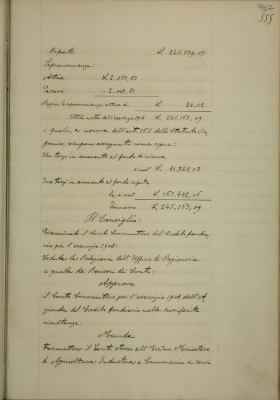 555
Riporto L. 245.139,07
Sopravvenienze:
Attive L. 2.071,83
Passive " 2.047,81
Maggior sopravvenienza attiva di L. 24,02
Utili netti dell'esercizio 1908 L. 245.163,09
i quali, a norma dell'art. 155 dello Statuto
vengono assegnati come segue:
Un terzo in aumento al fondo di riserva
cioè L. 81.721,03
Due terzi in aumento al fondo
L. 163.442,06
Tornano L. 245.163,09
Il Consiglio:
Esaminato il Conto Consuntivo del Credito fondia-
rio per l'esercizio 1908:
Veduta la Relazione dell'Ufficio di Ragioneria
e quella dei Revisori dei Conti:
Approva
il Conto Consuntivo per l'esercizio 1908 dell'A-
zienda del Credito fondiario nelle
risultanze:
Manda
trasmettere il Conto stesso all' Ministero
di Agricoltura Industria e Commercio ai sensi